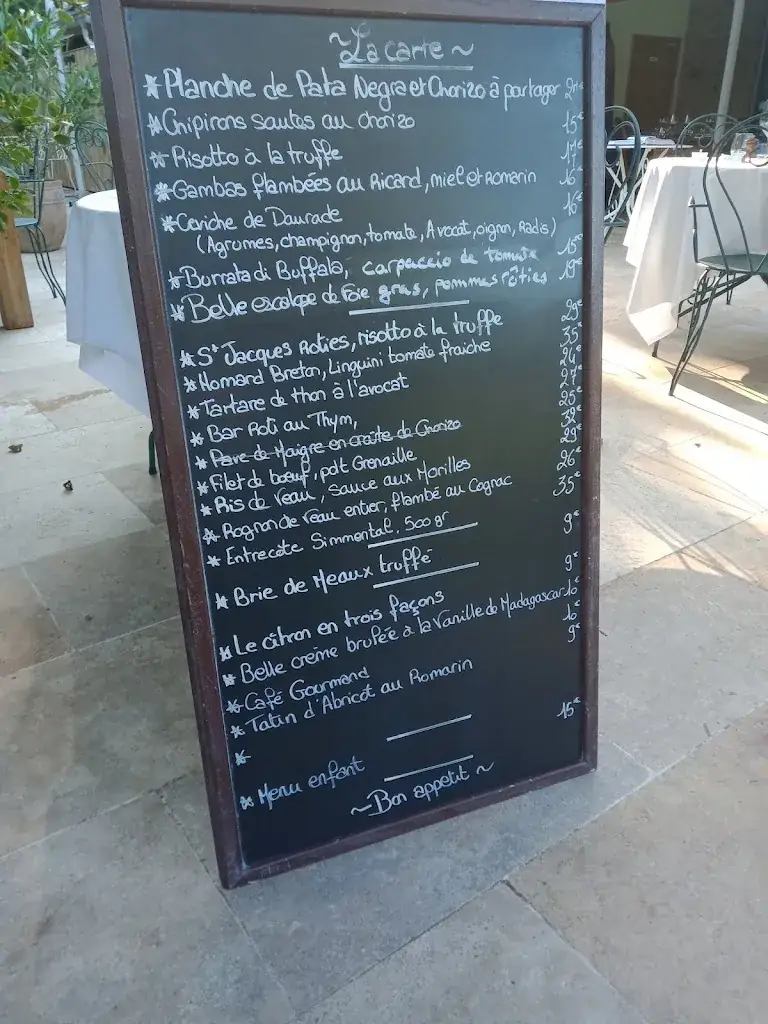 ~ La carte ~
* Planche de Pata Negra et Chorizo à partager
* Chipirons sautés au chorizo 15€
* Risotto à la truffe 17€
* Gambas flambées au Ricard, miel et Romarin 16€
* Ceviche de Daurade 16€
(Agrumes, champignon, tomate, Avocat, oignon, Radis)
* Burrata di Buffala, carpaccio de tomate 15€
* Belle escalope de Foie gras, pommes rôties 19€
* St Jacques Roties, risotto à la truffe 29€
* Homard Breton, Linguini tomate fraiche 35€
* Tartare de thon à l'avocat 24€
* Bar Roti au Thym, 27€
* Pavé de Maigre en croûte de Chorizo 25€
* Filet de bœuf, pdt Grenaille 32€
* Ris de Veau, sauce aux Morilles 29€
* Rognon de Veau entier, flambé au Cognac 26€
* Entrecôte Simmental, 500 gr 35€
* Brie de Meaux truffé 9€
* Le citron en trois façons 9€
* Belle crème brulée à la Vanille de Madagascar 10€
* Café Gourmand 10€
* Tatin d'Abricot au Romarin 9€
*
* Menu enfant 15€
~ Bon appetit ~